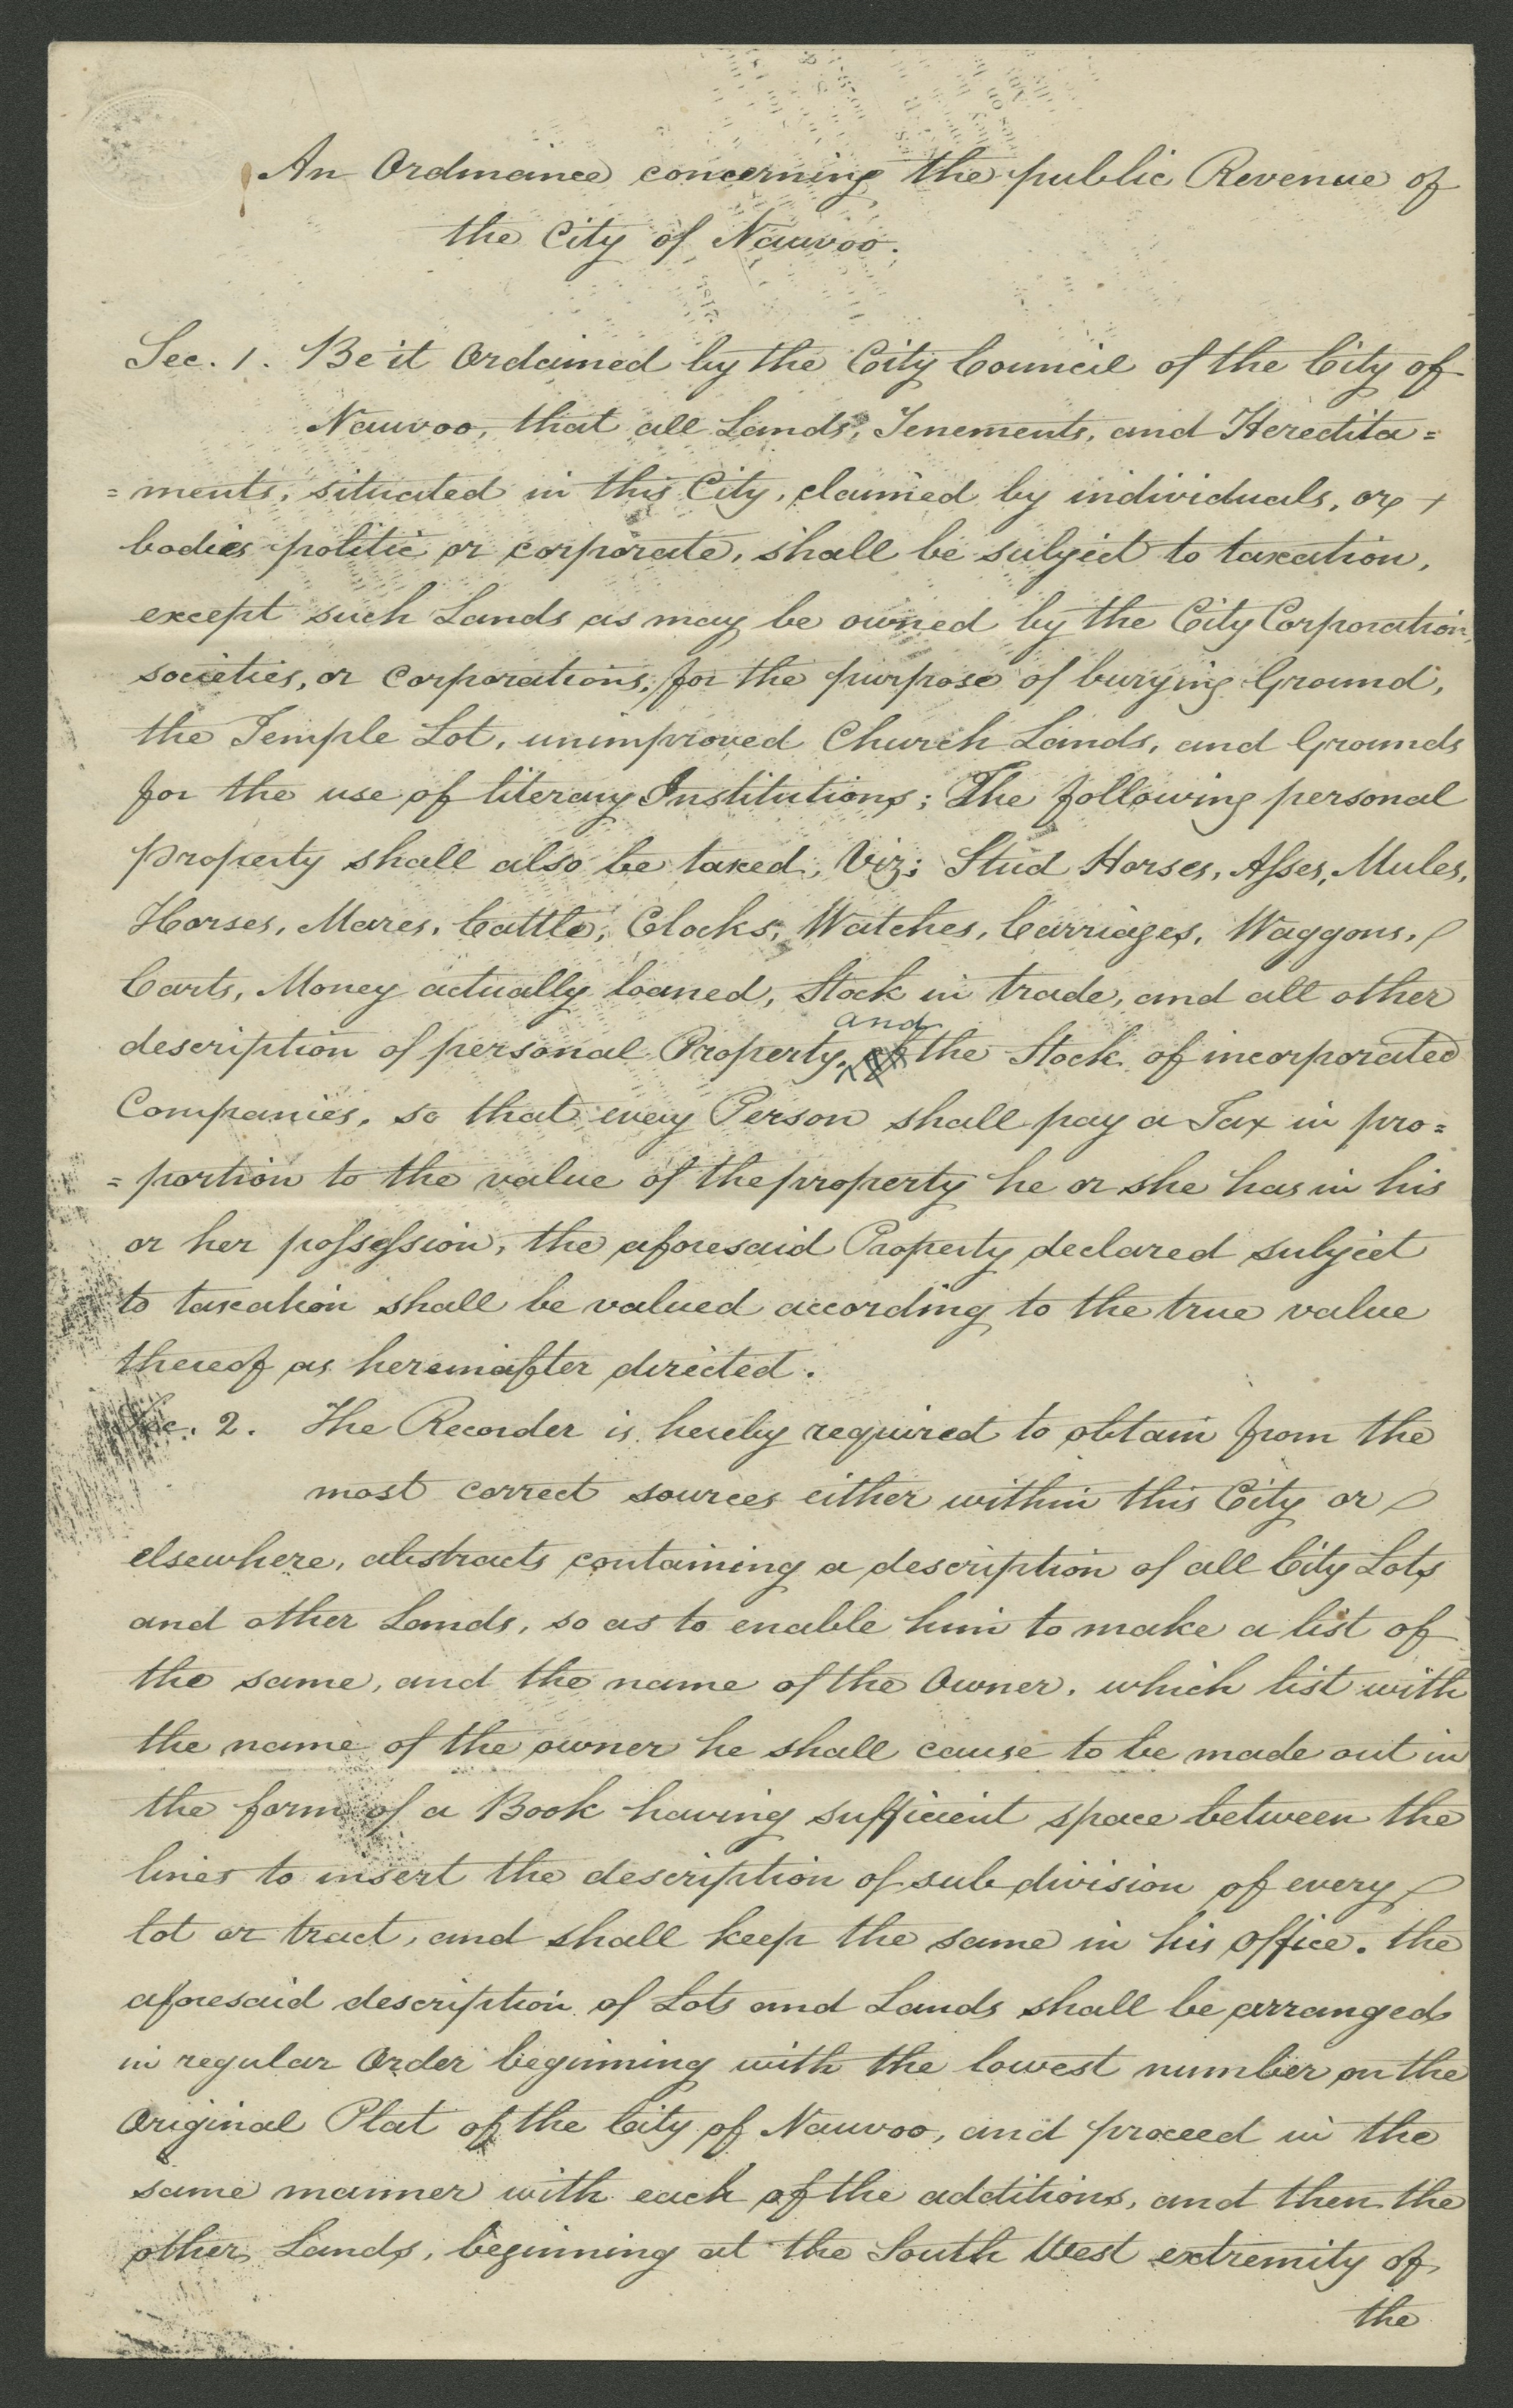 An Ordinance concerning the public Revenue of
the City of Nauvoo.
Sec. 1. Be it Ordained by the City Council of the City of
Nauvoo, that all Lands, Tenements, and Heredita=
=ments, situated in this City, claimed by individuals, or +
bodies politic or corporate, shall be subject to taxation,
except such Lands as may be owned by the City Corporation,
societies, or Corporations, for the purpose of burying Ground,
the Temple Lot, unimproved Church Lands, and Grounds
for the use of literary Institutions; The following personal
property shall also be taxed, Viz; Stud Horses, Asses, Mules,
Horses, Mares, Cattle, Clocks, Watches, Carriages, Waggons,
Carts, Money actually loaned, Stock in trade, and all other
description of personal Property, and the Stock of incorporated
Companies, so that every Person shall pay a Tax in pro=
=portion to the value of the property he or she has in his
or her possession, the aforesaid Property declared subject
to taxation shall be valued according to the true value
thereof as hereinafter directed.
Sec. 2. The Recorder is hereby required to obtain from the
most correct sources either within this City or
elsewhere, abstracts containing a description of all City Lots
and other Lands, so as to enable him to make a list of
the same, and the name of the Owner. which list with
the name of the owner he shall cause to be made out in
the form of a Book having sufficient space between the
lines to insert the description of sub division of every
lot or tract, and shall keep the same in his office. the
aforesaid description of Lots and Lands shall be arranged
in regular Order beginning with the lowest number on the
Original Plat of the City of Nauvoo, and proceed in the
same manner with each of the additions, and then the
other Lands, beginning at the South West extremity of
the